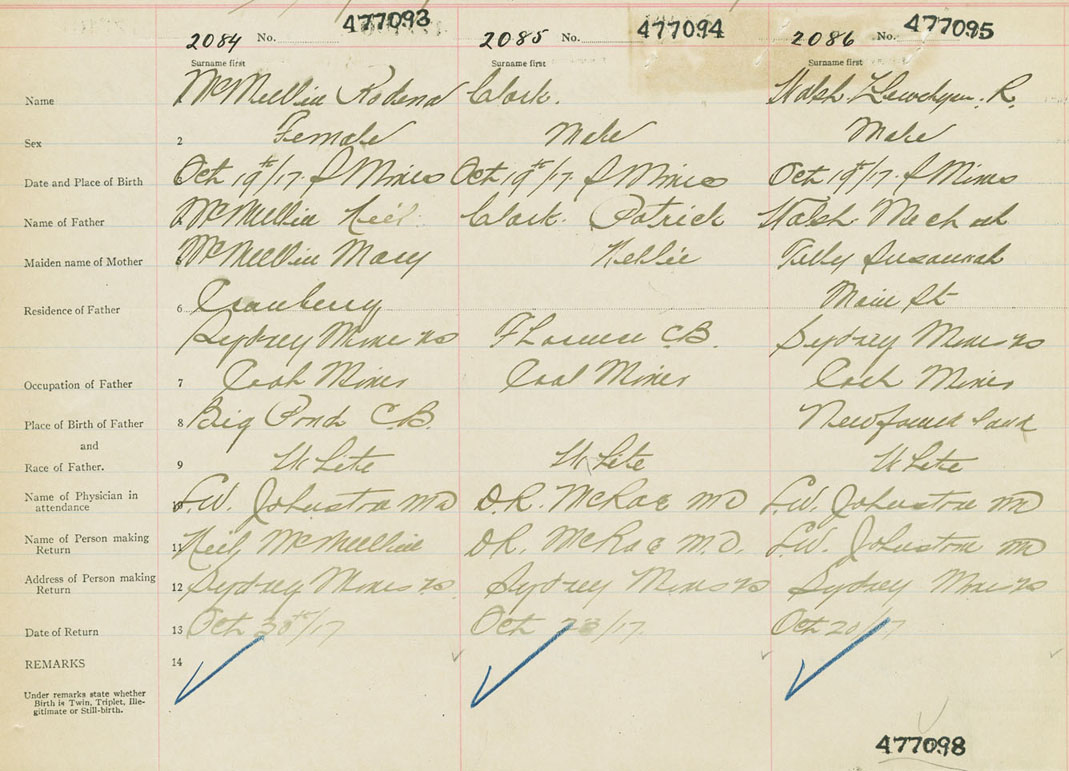 2084 No. 477093 2085 No. 477094 2086 No. 477095
Surname first Surname first Surname first
Name McMullin Rodena Clark. Walsh Llewelyn. R.
Sex 2 Female Male Male
Date and Place of Birth Oct 19th/17. S Mines Oct 19th/17. S Mines Oct 19th/17. S Mines
Name of Father McMullin Neil Clark. Patrick Walsh
Maiden name of Mother McMullin Mary Nellie Tilly Susannah
Residence of Father 6 Cranberry Main St
Sydney Mines NS Florence C.B. Sydney Mines NS
Occupation of Father 7 Coal Miner Coal Miner Coal Miner
Place of Birth of Father 8 Big Pond C.B. Newfoundland
and
Race of Father. 9 White White White
Name of Physician in
attendance 10 Johnston MD D.R. McRae MD Johnston MD
Name of Person making
Return 11 Neil McMullin D.R. McRae M.D. Johnston MD
Address of Person making
Return 12 Sydney Mines NS Sydney Mines NS Sydney Mines NS
Date of Return 13 Oct 30th/17 Oct 23/17. Oct 20/17
REMARKS 14
Under remarks state whether
Birth is Twin, Triplet, Ille-
gitimate or Still-birth.
477098